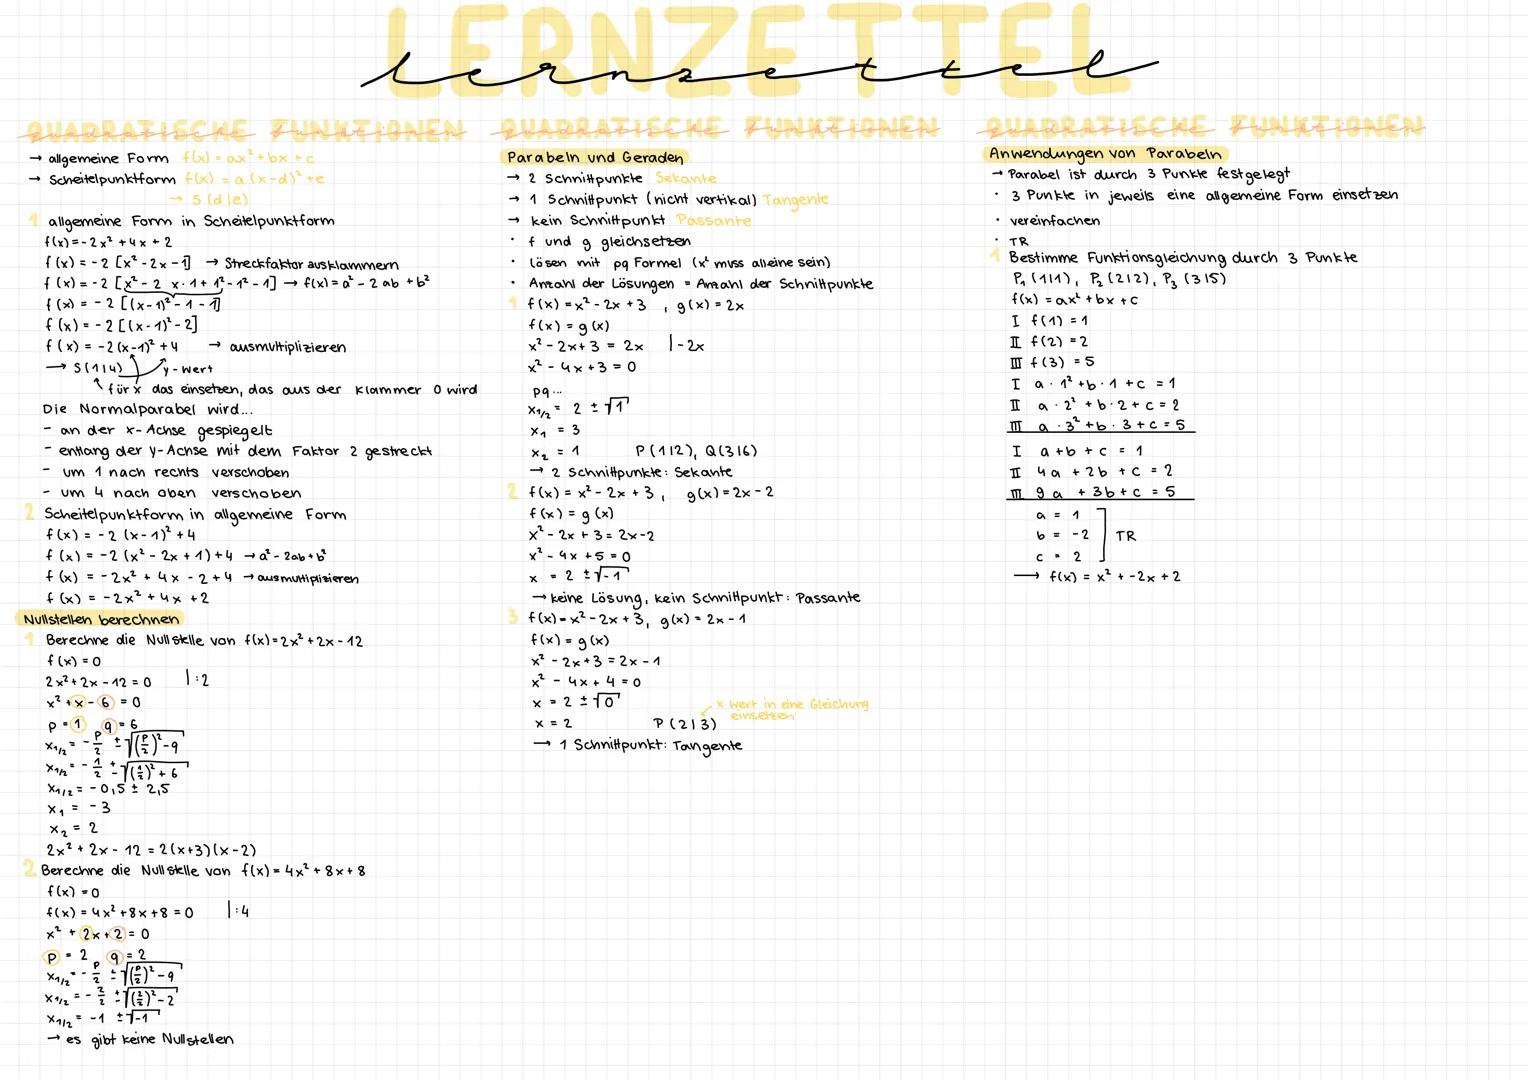 LERNZETTEL
lernzettel
QUADRATISCHE FUNKTIONEN
→ allgemeine Form f(x) = ax² + bx + c
→ Scheitelpunktform f(x) = a (x-d)² + e
→ S (d|e)
1 allgemeine Form in Scheitelpunktform
f(x) = -2x² + 4x + 2
f(x) = -2 [x² - 2x - 1] → Streckfaktor ausklammern
f(x) = -2 [x² - 2 x·1 + 1² - 1² - 1] → f(x) = a² - 2ab + b²
f(x) = -2 [(x-1)² - 1 - 1]
f(x) = -2 [(x-1)² - 2]
f(x) = -2 (x-1)² + 4 → ausmultiplizieren
→ S(1|4) y-Wert
für x das einsetzen, das aus der Klammer 0 wird
Die Normalparabel wird...
- an der x-Achse gespiegelt
- entlang der y-Achse mit dem Faktor 2 gestreckt
- um 1 nach rechts verschoben
- um 4 nach oben verschoben
2 Scheitelpunktform in allgemeine Form
f(x) = -2 (x-1)² + 4
f(x) = -2 (x² - 2x + 1) + 4 → a² - 2ab + b²
f(x) = -2x² + 4x - 2 + 4 → ausmultiplizieren
f(x) = -2x² + 4x + 2
Nullstellen berechnen
1 Berechne die Nullstelle von f(x) = 2x² + 2x - 12
f(x) = 0
2x² + 2x - 12 = 0 |:2
x² + x - 6 = 0
p = 1 q = 6
x₁/₂ = -p/2 ± √((p/2)² - q)
x₁/₂ = -1/2 ± √((1/2)² + 6)
x₁/₂ = -0,5 ± 2,5
x₁ = -3
x₂ = 2
2x² + 2x - 12 = 2(x+3)(x-2)
2 Berechne die Nullstelle von f(x) = 4x² + 8x + 8
f(x) = 0
f(x) = 4x² + 8x + 8 = 0 |:4
x² + 2x + 2 = 0
p = 2 q = 2
x₁/₂ = -p/2 ± √((p/2)² - q)
x₁/₂ = -2/2 ± √((2/2)² - 2)
x₁/₂ = -1 ± √-1
→ es gibt keine Nullstellen
QUADRATISCHE FUNKTIONEN
Parabeln und Geraden
→ 2 Schnittpunkte Sekante
→ 1 Schnittpunkt (nicht vertikal) Tangente
→ kein Schnittpunkt Passante
· f und g gleichsetzen
· lösen mit pq Formel (x² muss alleine sein)
· Anzahl der Lösungen = Anzahl der Schnittpunkte
1 f(x) = x² - 2x + 3 , g(x) = 2x
f(x) = g(x)
x² - 2x + 3 = 2x |-2x
x² - 4x + 3 = 0
pq...
x₁/₂ = 2 ± √1
x₁ = 3
x₂ = 1 P(1|2), Q(3|6)
→ 2 Schnittpunkte: Sekante
2 f(x) = x² - 2x + 3, g(x) = 2x - 2
f(x) = g(x)
x² - 2x + 3 = 2x - 2
x² - 4x + 5 = 0
x = 2 ± √-1
→ keine Lösung, kein Schnittpunkt: Passante
3 f(x) = x² - 2x + 3, g(x) = 2x - 1
f(x) = g(x)
x² - 2x + 3 = 2x - 1
x² - 4x + 4 = 0
x = 2 ± √0
x Wert in eine Gleichung einsetzen
x = 2 P(2|3)
→ 1 Schnittpunkt: Tangente
QUADRATISCHE FUNKTIONEN
Anwendungen von Parabeln
→ Parabel ist durch 3 Punkte festgelegt
· 3 Punkte in jeweils eine allgemeine Form einsetzen
· vereinfachen
· TR
1 Bestimme Funktionsgleichung durch 3 Punkte
P₁ (1|1), P₂ (2|2), P₃ (3|5)
f(x) = ax² + bx + c
I f(1) = 1
II f(2) = 2
III f(3) = 5
I a · 1² + b · 1 + c = 1
II a · 2² + b · 2 + c = 2
III a · 3² + b · 3 + c = 5
I a + b + c = 1
II 4a + 2b + c = 2
III 9a + 3b + c = 5
a = 1
b = -2 TR
c = 2
→ f(x) = x² + -2x + 2